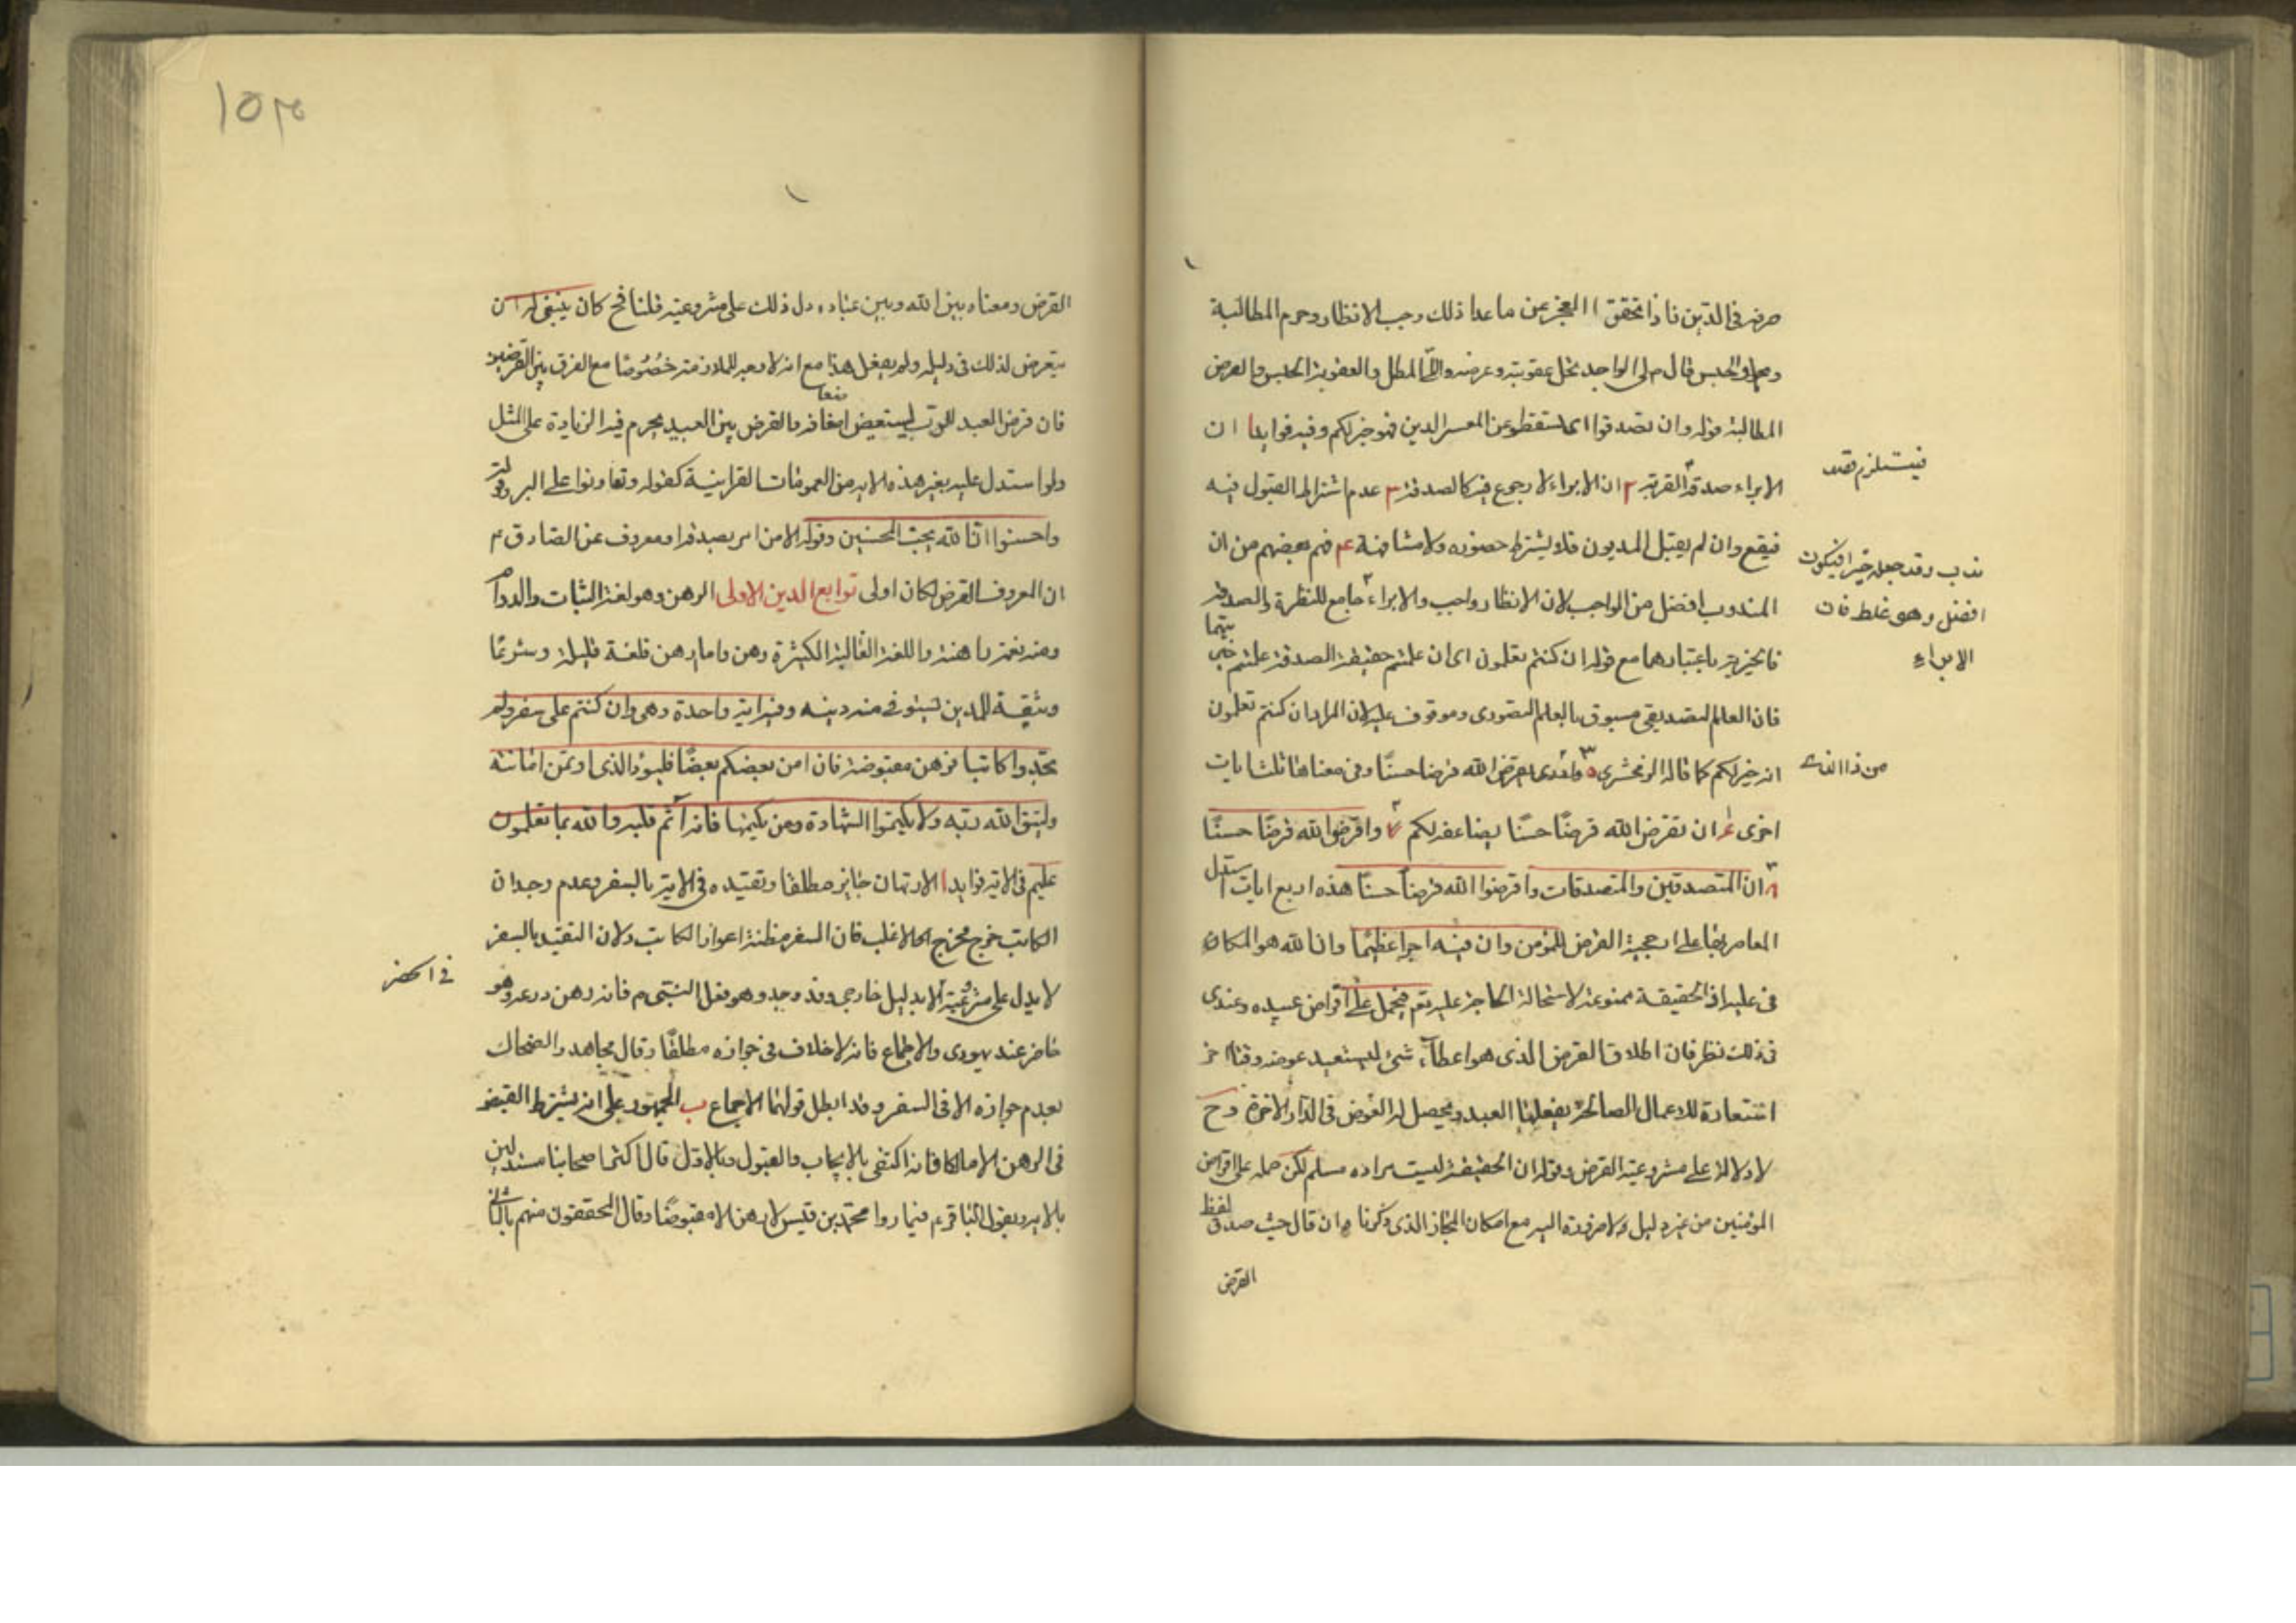 صرفه في الدين فاذا تحقق العجز عن ما عدا ذلك وجب الانظار وحرم المطالبة
والحبس قال م لى الواجد يحل عقوبته وعرضه واللى المطل والعقوبة الحبس والعرض
المطالبة قوله وان تصدقوا اى تسقطو عن المعسر الدين فهو خير لكم وفيه فوايد ا ان
الابراء صدقة القربة ٢ ان الابراء لا رجوع فيه كالصدقة ٣ عدم اشتراط القبول فيه
فيستلزم قصد
فيقع وان لم يقبل المديون فلا يشترط حضوره ولا مشافهة عم فهم بعضهم من ان
ندب وقد جعله خيرا فيكون
افضل وهو غلط فان
الابراء
المندوب افضل من الواجب لان الانظار واجب والابراء جامع للنظرة والصدقة
فالخيرية باعتبارهما مع قوله ان كنتم تعلمون اى ان علمتم حقيقة الصدقة علمتم خيريتها
فان العلم التصديقى مسبوق بالعلم التصورى وموقوف عليه لان المراد ان كنتم تعلمون
انه خير لكم كما قاله الزمخشرى ٥ يقرض الله قرضا حسنا وفى معناها ثلث ايات
من ذا الذى
اخرى ان تقرضوا الله قرضًا حسنًا يضاعفه لكم واقرضوا الله قرضًا حسنًا
ان المتصدقين والمتصدقات واقرضوا الله قرضًا حسنًا هذه اربع ايات استدل
المعاصر بها على ارجحية القرض للمؤمن وان فيه اجرا عظيمًا وان الله هو المكافى
فى عليه اذ الحقيقة ممنوعة لاستحالة الحاجة عليه تع فيحمل على اقراض عبيده وعندى
فى ذلك نظر فان اطلاق القرض الذى هو اعطاء شئ ليستعيد عوضه وقتا اخر
استعارة للاعمال الصالحة يفعلها العبد ويحصل له العوض فى الدار الاخرة وح
لا دلالة على مشروعية القرض وقوله ان الحقيقة ليست مراده مسلم لكن حمله على اقراض
المؤمنين من غير دليل ولا ضرورة اليه مع امكان المجاز الذى ذكرنا ه ان قال حيث صدق لفظ
القرض
١٥٣
القرض ومعناه بين الله وبين عباده دل ذلك على مشروعيته قلنا فح كان ينبغى له ان
يتعرض لذلك فى دليله ولم يفعل هذا مع انه لا وجه للملازمة خصُوصًا مع الفرق بين القرضين
فان قرض العبد للرب ليستعيض اضعافه والقرض بين العبيد يحرم فيه الزيادة على المثل
ولو استدل عليه بغير هذه الايه من العمومات القرانية كقوله وتعاونوا على البر وقوله
واحسنوا ان الله يحب المحسنين وقوله الا من امر بصدقة او معروف عن الصادق ع
ان المعروف القرض لكان اولى توابع الدين الاولى الرهن وهو لغة الثبات والدوام
ومنه نعمة راهنة واللغة الغالبة الكثيرة رهن واما ارهن فلغة قليلة وشرعًا
وثيقة للمدين ليستوفى منه دينه وفيه اية واحدة وهى وان كنتم على سفر ولم
تجدوا كاتبا فرهن مقبوضة فان امن بعضكم بعضًا فليؤد الذى اوتمن امانته
وليتق الله ربه ولا تكتموا الشهادة ومن يكتمها فانه آثم قلبه والله بما تعلمون
عليم فى الاية فوايد ا الارتهان جايز مطلقا وتقييده فى الاية بالسفر وعدم وجدان
الكاتب خرج مخرج الاغلب فان السفر مظنة اعواز الكاتب ولان التقييد بالسفر
لا يدل على مشروعيته الا بدليل خارجى وقد وجد وهو فعل النبى م فانه رهن درعه وهو
فى الحضر
حاضر عند يهودى والاجماع فانه لا خلاف فى جوازه مطلقًا وقال مجاهد والضحاك
بعدم جوازه الا فى السفر وقد ابطل قولهما الاجماع ب الجمهور على انه يشترط القبض
فى الرهن الا مالكا فانه اكتفى بالايجاب والقبول وبالاول قال اكثر اصحابنا مستدلين
بالايه وبقول الباقر ع فيما رواه محمد بن قيس لا رهن الا مقبوضًا وقال المحققون منهم بالثانى